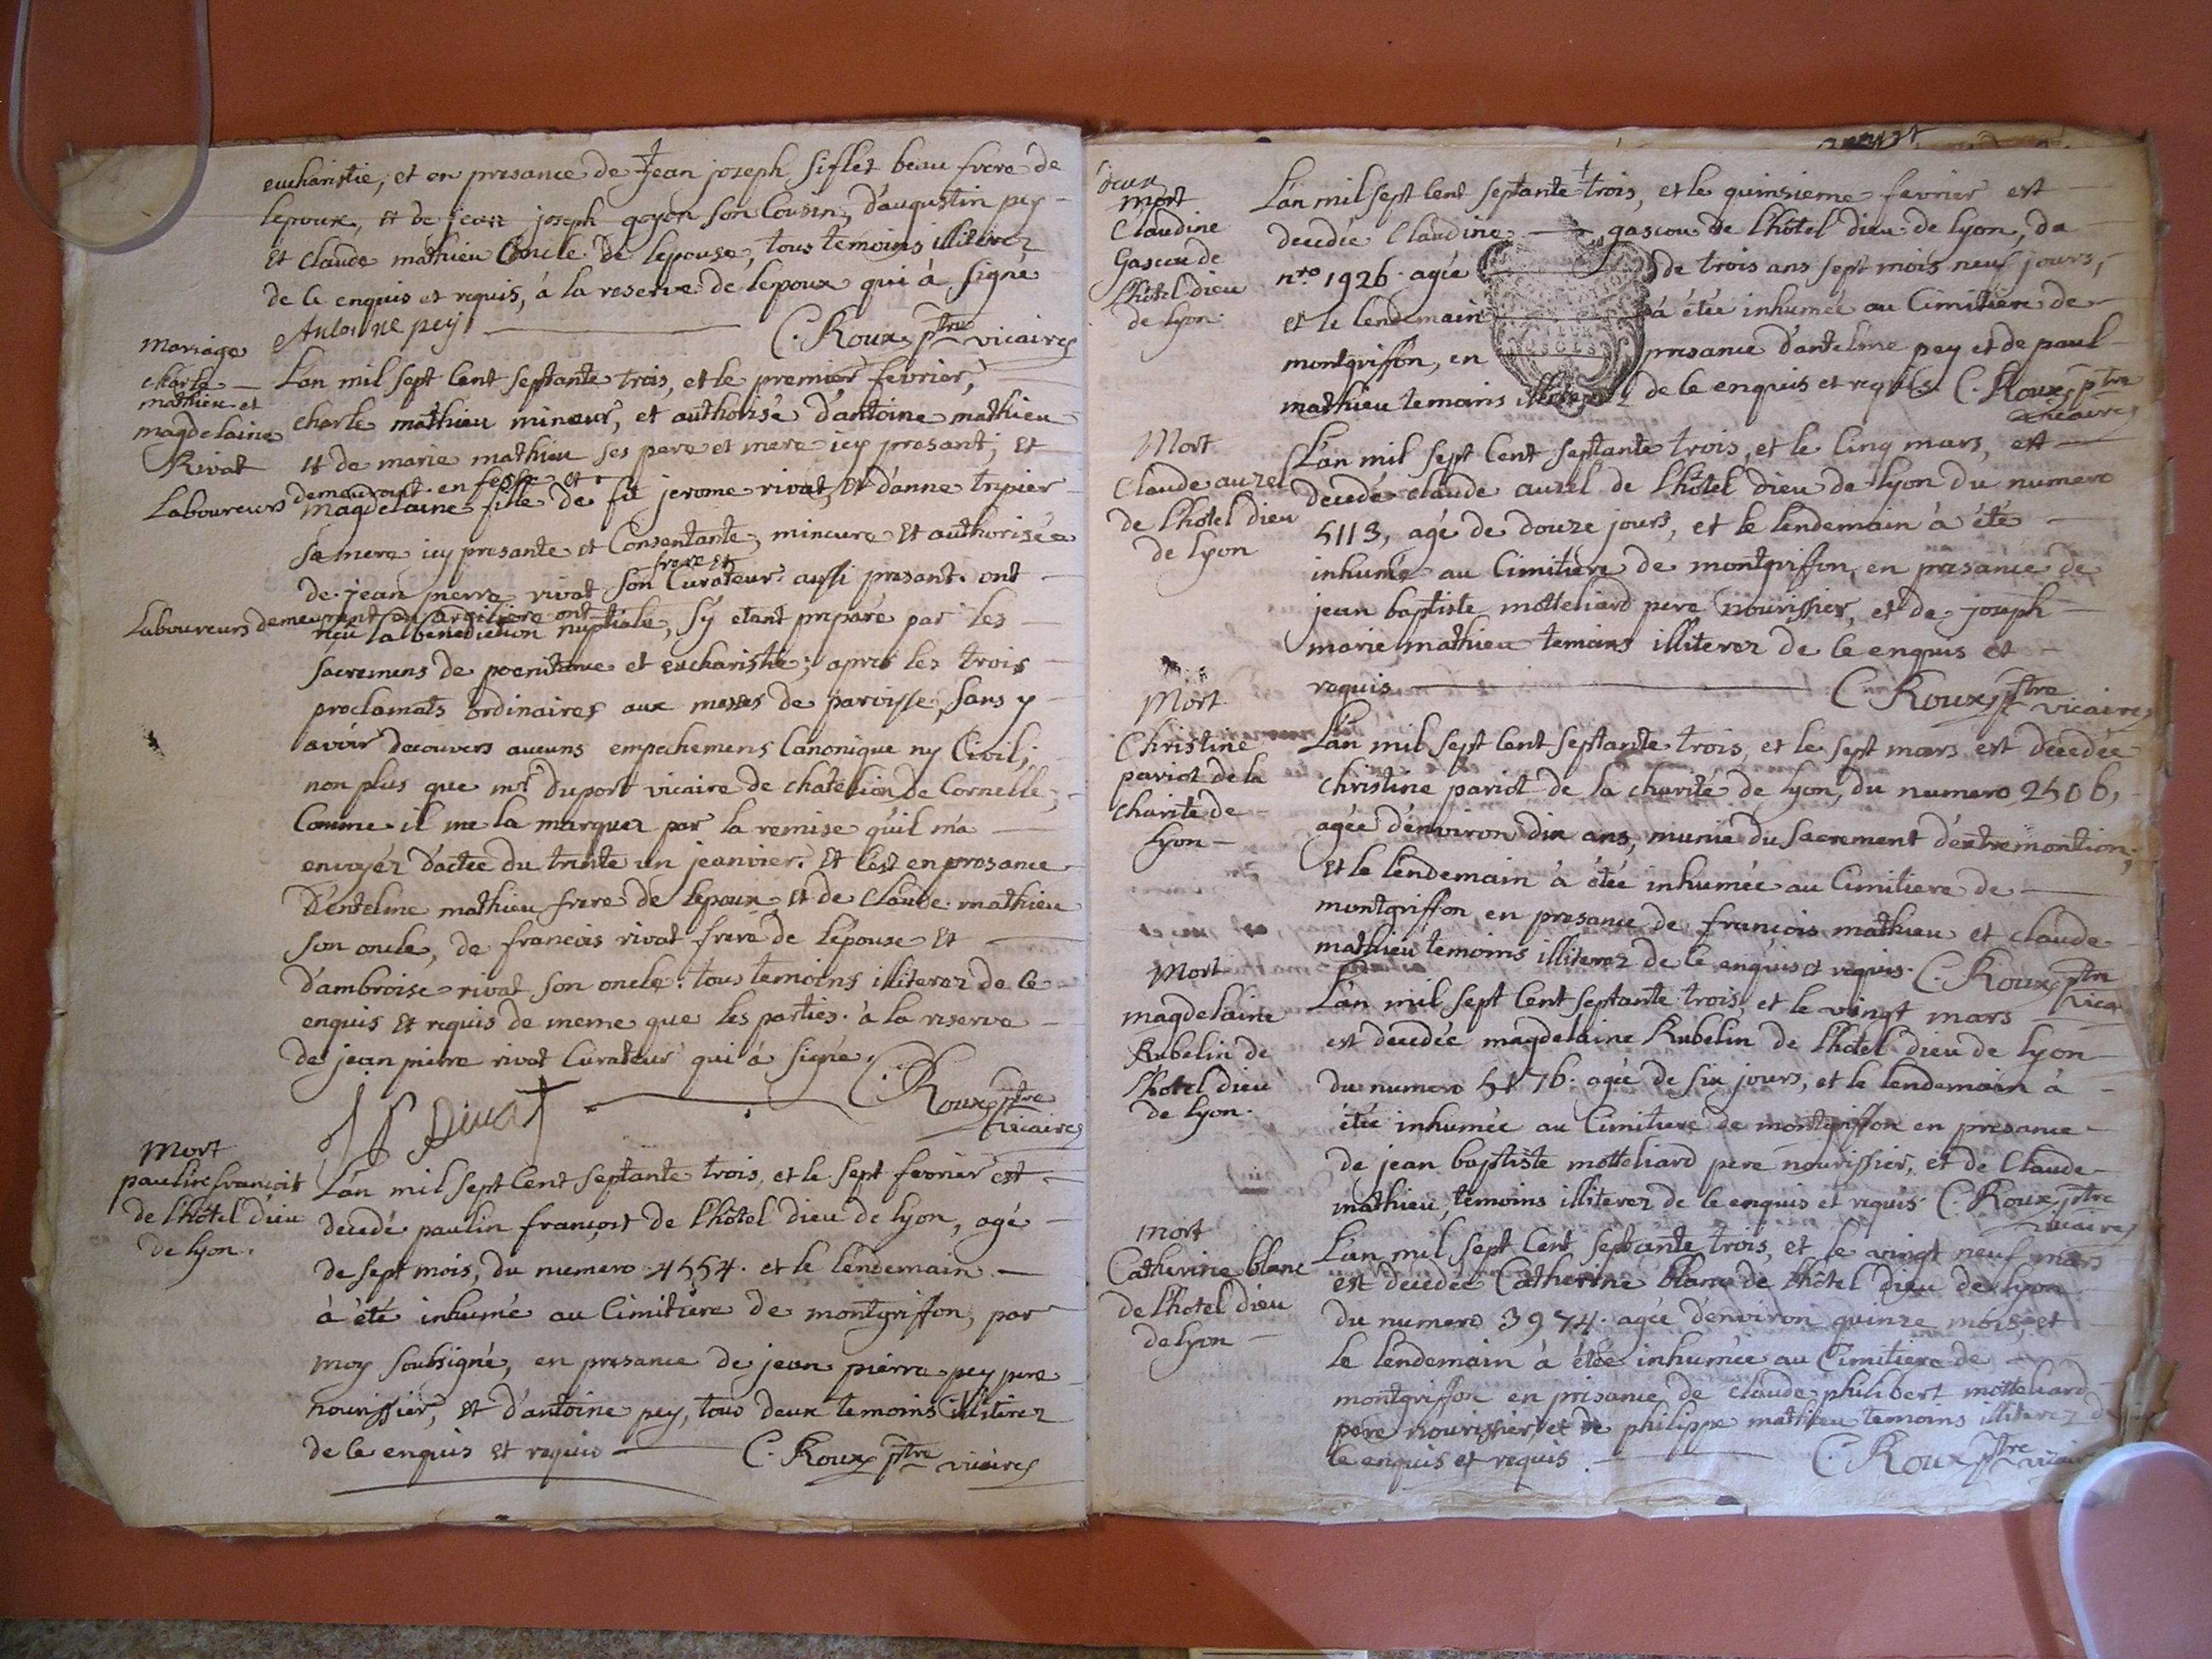 eucharistie, et en presance de Jean joseph siflet beau frere de
lepoux, et de jean joseph goyon son Cousin, d'augustin pey
Et Claude mathieu Oncle de lepouse, tous temoins illiterez
de ce enquis et requis, à la reserve de lepoux qui à signé
Antoine pey C. Roux ptre vicaire
Mariage
charle
mathieu et
magdelaine
Rivat
Laboureurs
L'an mil sept Cent septante trois, et le premier fevrier,
charle mathieu mineur, et authorisé d'antoine mathieu
et de marie mathieu ses pere et mere icy presant; et
demeurant en fesse et
magdelaine fille de fû jerome rivat, et d'anne tripier
sa mere icy presante et Consentante, mineure Et authorisée
frere et
de jean pierre rivat son Curateur aussi presant. ont
Laboureurs demeurant en argiliere ont
reçu la benediction nuptiale, s'y etant preparé par les
sacremens de poenitence et eucharistie; apres les trois
proclamats ordinaires aux messes de paroisse, sans y
avoir decouvers aucuns empechemens Canonique ny Civil;
non plus que mr duport vicaire de chatelion de Cornelle;
Comme il me la marquez par la remise qu'il m'a
envoyéz d'actée du trente un jeanvier. Et c'est en presance
D'entelme mathieu frere de lepoux et de Claude mathieu
son oncle, de francois rivat frere de lépouse Et
d'ambroise rivat son oncle. tous temoins illiterez de ce
enquis Et requis de meme que les parties. à la reserve
de jean pierre rivat Curateur qui à signé.
J P Rivat C. Roux ptre
vicaire
Mort
paulin françoit
de l'hôtel dieu
de lyon.
L'an mil sept Cent septante trois, et le sept fevrier est
decedé paulin françoit de l'hôtel dieu de lyon, agé
de sept mois, du numero 4554. et le lendemain
à été inhumé au Cimitiere de montgriffon, par
moy soubsigné, en presance de jean pierre pey pere
nourissier, Et d'antoine pey, tous deux temoins illiterez
de ce enquis Et requis C. Roux ptre vicaire
deux
mort
Claudine
Gascou de
l'hôtel dieu
de lyon.
L'an mil sept Cent septante trois, et le quinsieme fevrier est
decedée Claudine gascou de l'hôtel dieu de lyon, du
nro 1926. agée de trois ans sept mois neuf jours,
et le lendemain à étée inhumée au Cimitiere de
montgriffon, en presance d'antelme pey et de paul
mathieu temoins illiterez de ce enquis et requis C. Roux ptre
vicaire
Mort
Claude auzel
de l'hôtel dieu
de lyon
L'an mil sept Cent septante trois, et le Cinq mars, est
decedé claude auzel de l'hôtel dieu de lyon du numero
5113, agé de douze jours, et le lendemain à été
inhumé au Cimitiere de montgriffon, en presance de
jean baptiste motteliard pere nourissier, et de joseph
marie mathieu temoins illiterez de ce enquis et
requis C. Roux ptre vicaire
Mort
Christine
pariot de la
charité de
lyon
L'an mil sept Cent septante trois, et le sept mars est decedée
christine pariot de la charité de lyon, du numero 2506,
agée d'environ dix ans, munie du sacrement d'extremontion;
Et le lendemain à étée inhumée au Cimitiere de
montgriffon en presance de françois mathieu et claude
mathieu temoins illiterez de ce enquis et requis. C. Roux ptre
vica
Mort
magdelaine
Rubelin de
l'hotel dieu
de lyon.
L'an mil sept Cent septante trois, et le vingt mars
est decedée magdelaine Rubelin de l'hôtel dieu de lyon
du numero 5176. agée de six jours, et le lendemain à
étée inhumée au Cimitiere de montgriffon en presance
de jean baptiste motteliard pere nourissier, et de Claude
mathieu, temoins illiterez de ce enquis et requis C. Roux ptre
vicaire
mort
Catherine blanc
de l'hotel dieu
de lyon
L'an mil sept Cent septante trois, et le vingt neuf mars
est decedée Catherine blanc de l'hôtel dieu de lyon
du numero 3974. agée d'environ quinze mois, et
le lendemain à étée inhumée au Cimitiere de
montgriffon en presance de claude philibert motteliard
pere nourissier, et de philippe mathieu temoins illiterez d
ce enquis et requis. C. Roux ptre vicair